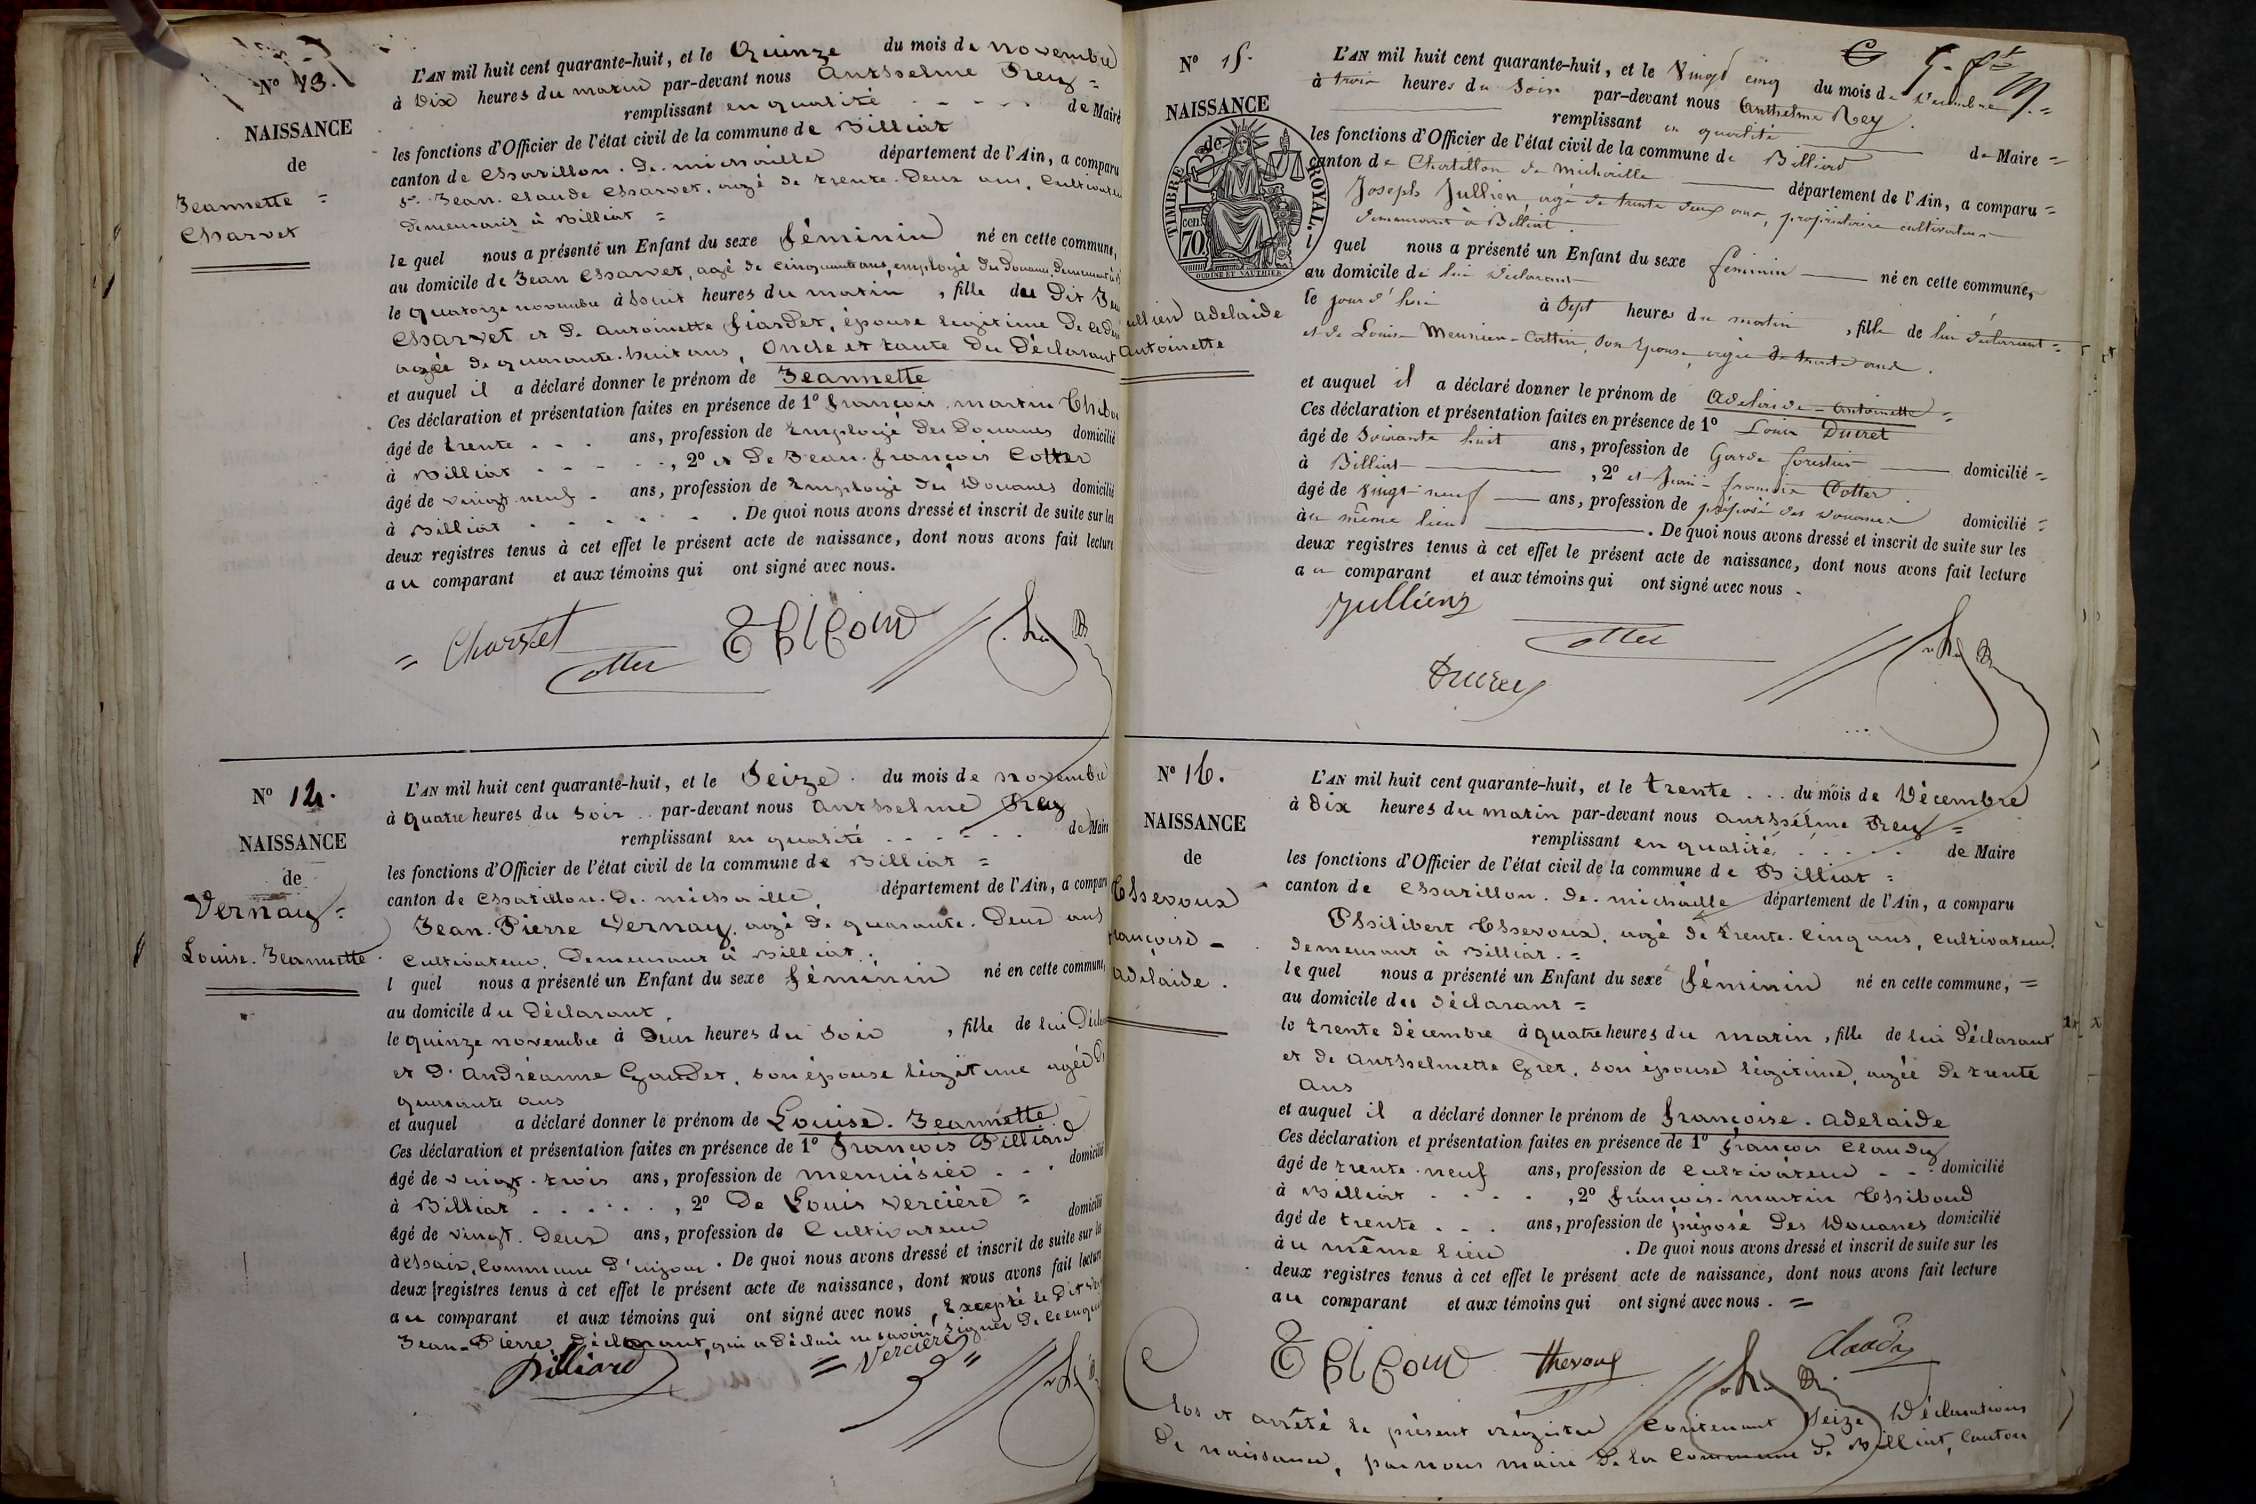 N° 13.
NAISSANCE
de
Jeannette =
Charvet
L'AN mil huit cent quarante-huit, et le Quinze du mois de novembre
à Dix heures du matin par-devant nous Anthelme Rey =
remplissant en qualité de Maire
les fonctions d'Officier de l'état civil de la commune de Billiat
canton de Chatillon. de. michaille département de l'Ain, a comparu
Sr. Jean. Claude Charvet, agé de trente. Deux ans, Cultivateur
demeurant à Billiat =
le quel nous a présenté un Enfant du sexe féminin né en cette commune,
au domicile de Jean Charvet, agé de cinquante ans, employé des Douanes, demeurant à
le quatorze novembre à huit heures du matin, fille du Dit Jean
Charvet et de Antoinette fiardet, épouse legitime De
agée de quarante. huit ans, Oncle et tante du Déclarant
et auquel il a déclaré donner le prénom de Jeannette
Ces déclaration et présentation faites en présence de 1° françois martin
âgé de trente ans, profession de Employé des Douanes domicilié
à Billiat, 2° et De Jean. françois Cotter
âgé de vingt. neuf ans, profession de Employé des Douanes domicilié
à Billiat. De quoi nous avons dressé et inscrit de suite sur les
deux registres tenus à cet effet le présent acte de naissance, dont nous avons fait lecture
au comparant et aux témoins qui ont signé avec nous.
= Charvet Cotter Thiboud
N° 14.
NAISSANCE
de
Vernay =
Louise. Jeannette
L'AN mil huit cent quarante-huit, et le Seize du mois de novembre
à quatre heures du soir par-devant nous Anthelme Rey
remplissant en qualité de Maire
les fonctions d'Officier de l'état civil de la commune de Billiat =
canton de Chatillon. De. michaille, département de l'Ain, a comparu
Jean. Pierre Vernay, agé de quarante. Deux ans
Cultivateur, Demeurant à Billiat,
l quel nous a présenté un Enfant du sexe féminin né en cette commune,
au domicile du Déclarant,
le quinze novembre à Deux heures du soir, fille de lui
et d'Andréanne Gaudet, son épouse légitime agée De
quarante ans
et auquel a déclaré donner le prénom de Louise. Jeannette
Ces déclaration et présentation faites en présence de 1° françois Billiard
âgé de vingt. trois ans, profession de menuisier domicilié
à Billiat, 2° De Louis Vercière = domicilié
âgé de vingt. Deux ans, profession de Cultivateur
Commune d'injoux. De quoi nous avons dressé et inscrit de suite sur les
deux registres tenus à cet effet le présent acte de naissance, dont nous avons fait lecture
au comparant et aux témoins qui ont signé avec nous, Excepté le Dit
Jean-Pierre, Déclarant, qui a déclaré ne savoir signer de ce
Billiard = Vercière
N° 15.
NAISSANCE
de
TIMBRE ROYAL.
70 cen.
OUDINÉ ET VAUTHIER
Jullien adelaide
Antoinette
L'AN mil huit cent quarante-huit, et le Vingt cinq du mois de Decembre
à trois heures du Soir par-devant nous Anthelme Rey.
remplissant en qualité de Maire =
les fonctions d'Officier de l'état civil de la commune de Billiat
canton de Chatillon de Michaille département de l'Ain, a comparu =
Joseph Jullien, agé de trente deux ans, propriétaire cultivateur
demeurant à Billiat.
l quel nous a présenté un Enfant du sexe féminin né en cette commune,
au domicile de lui déclarant
le jour d'hui à Sept heures du matin, fille de lui déclarant =
et de Louise Meunier-Cottin, son Epouse, agée de trente ans.
et auquel il a déclaré donner le prénom de Adelaide-Antoinette =
Ces déclaration et présentation faites en présence de 1° Louis Ducret
âgé de Soixante huit ans, profession de Garde forestier domicilié =
à Billiat, 2° et Jean-françois Cotter.
âgé de vingt-neuf ans, profession de préposé des Douanes domicilié =
au même lieu. De quoi nous avons dressé et inscrit de suite sur les
deux registres tenus à cet effet le présent acte de naissance, dont nous avons fait lecture
au comparant et aux témoins qui ont signé avec nous.
Jullien Cotter
Ducret
N° 16.
NAISSANCE
de
Thevoux
françoise -
adelaide.
L'AN mil huit cent quarante-huit, et le trente du mois de Décembre
à Dix heures du matin par-devant nous Anthelme Rey =
remplissant en qualité de Maire
les fonctions d'Officier de l'état civil de la commune de Billiat =
canton de Chatillon. de. michaille département de l'Ain, a comparu
Philibert Thevoux, agé de trente. cinq ans, cultivateur,
demeurant à Billiat. =
le quel nous a présenté un Enfant du sexe féminin né en cette commune, =
au domicile du déclarant =
le trente décembre à quatre heures du matin, fille de lui déclarant
et de Anthelmette Gret, son épouse légitime, agée de trente
ans
et auquel il a déclaré donner le prénom de françoise. adelaide
Ces déclaration et présentation faites en présence de 1° françois Claudy
âgé de trente. neuf ans, profession de cultivateur domicilié
à Billiat, 2° françois. martin Thiboud
âgé de trente ans, profession de préposé des Douanes domicilié
au même lieu. De quoi nous avons dressé et inscrit de suite sur les
deux registres tenus à cet effet le présent acte de naissance, dont nous avons fait lecture
au comparant et aux témoins qui ont signé avec nous. =
Thiboud thevoux Claudy
Clos et arrêté le présent régistre contenant Seize Déclarations
de naissance, par nous maire de la Commune de Billiat, Canton